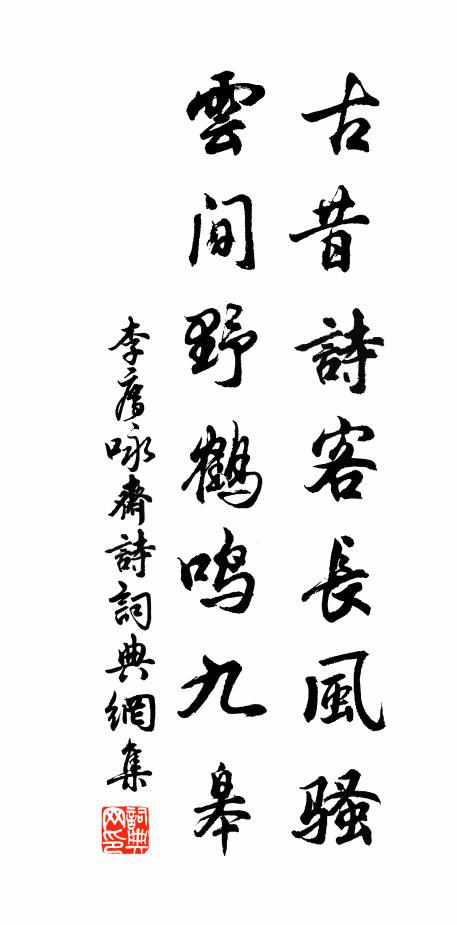 古昔詩客長風騷
雲間野鶴鳴九皋
李廌咏齋詩詞典網集
詞典網印